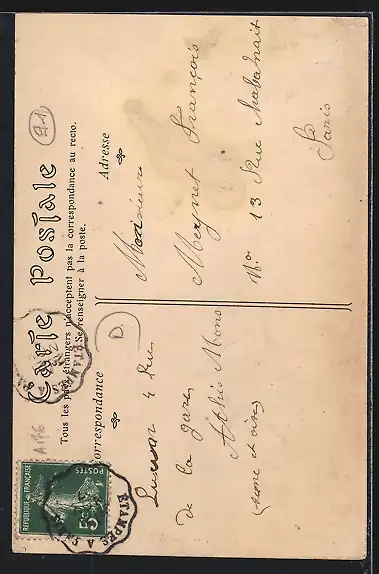 Carte Postale
Tous les pays étrangers n'acceptent pas la correspondance au recto.
Se renseigner à la poste.
Correspondance
Adresse
91
D
A196
RÉPUBLIQUE FRANÇAISE
POSTES
5c
ETAMPES A
ETAMPES
4 Rue
de la gare
Athis Mons
Seine et oise
Monsieur
Meynet François
No 13 Rue Chabanais
Paris